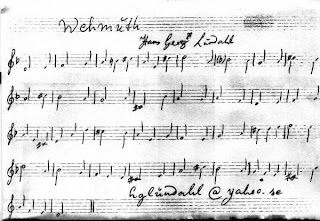 Wehmuth
Hans Georg Lundahl
hglundahl @ yahoo.se